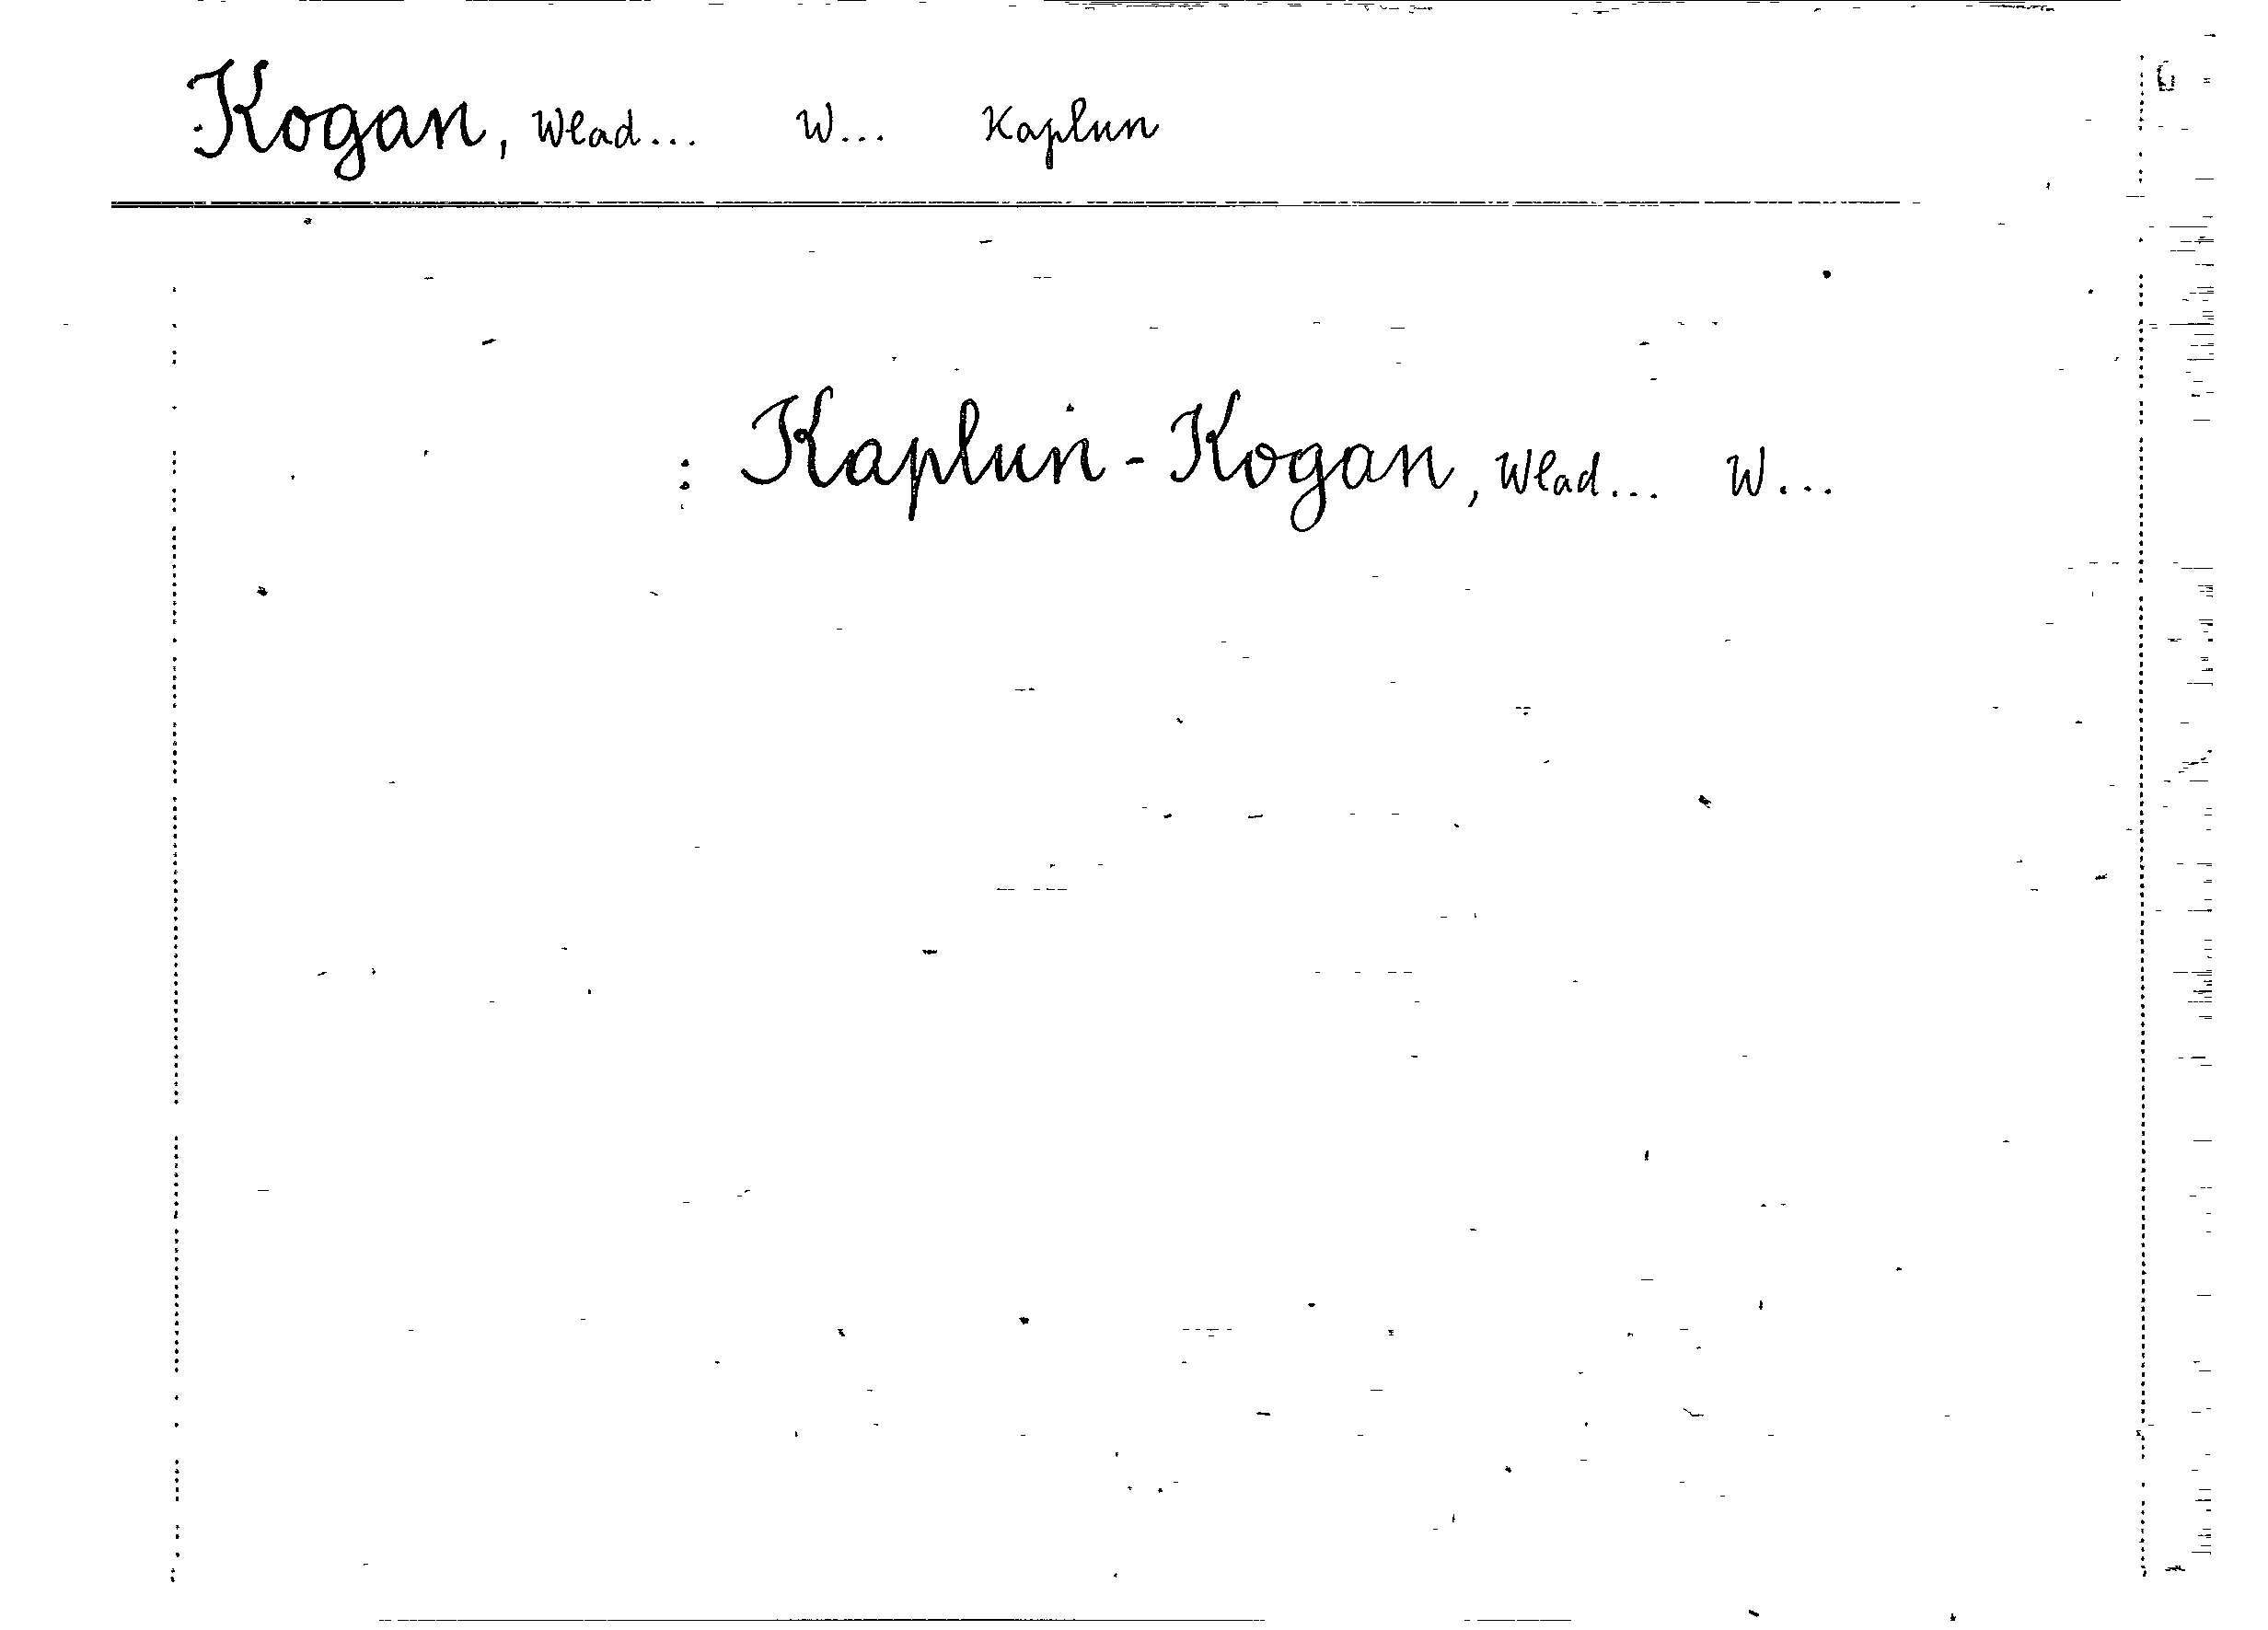 Kogan, Wlad... W... Kaplun
: Kaplun-Kogan, Wlad... W...